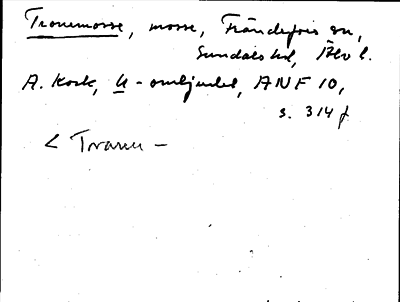 Tranemosse, mosse, Frändefors sn,
Sundals hd, Älvb l.
A. Kock, U-omljudet, ANF 10,
s. 314 f
< Tranu -